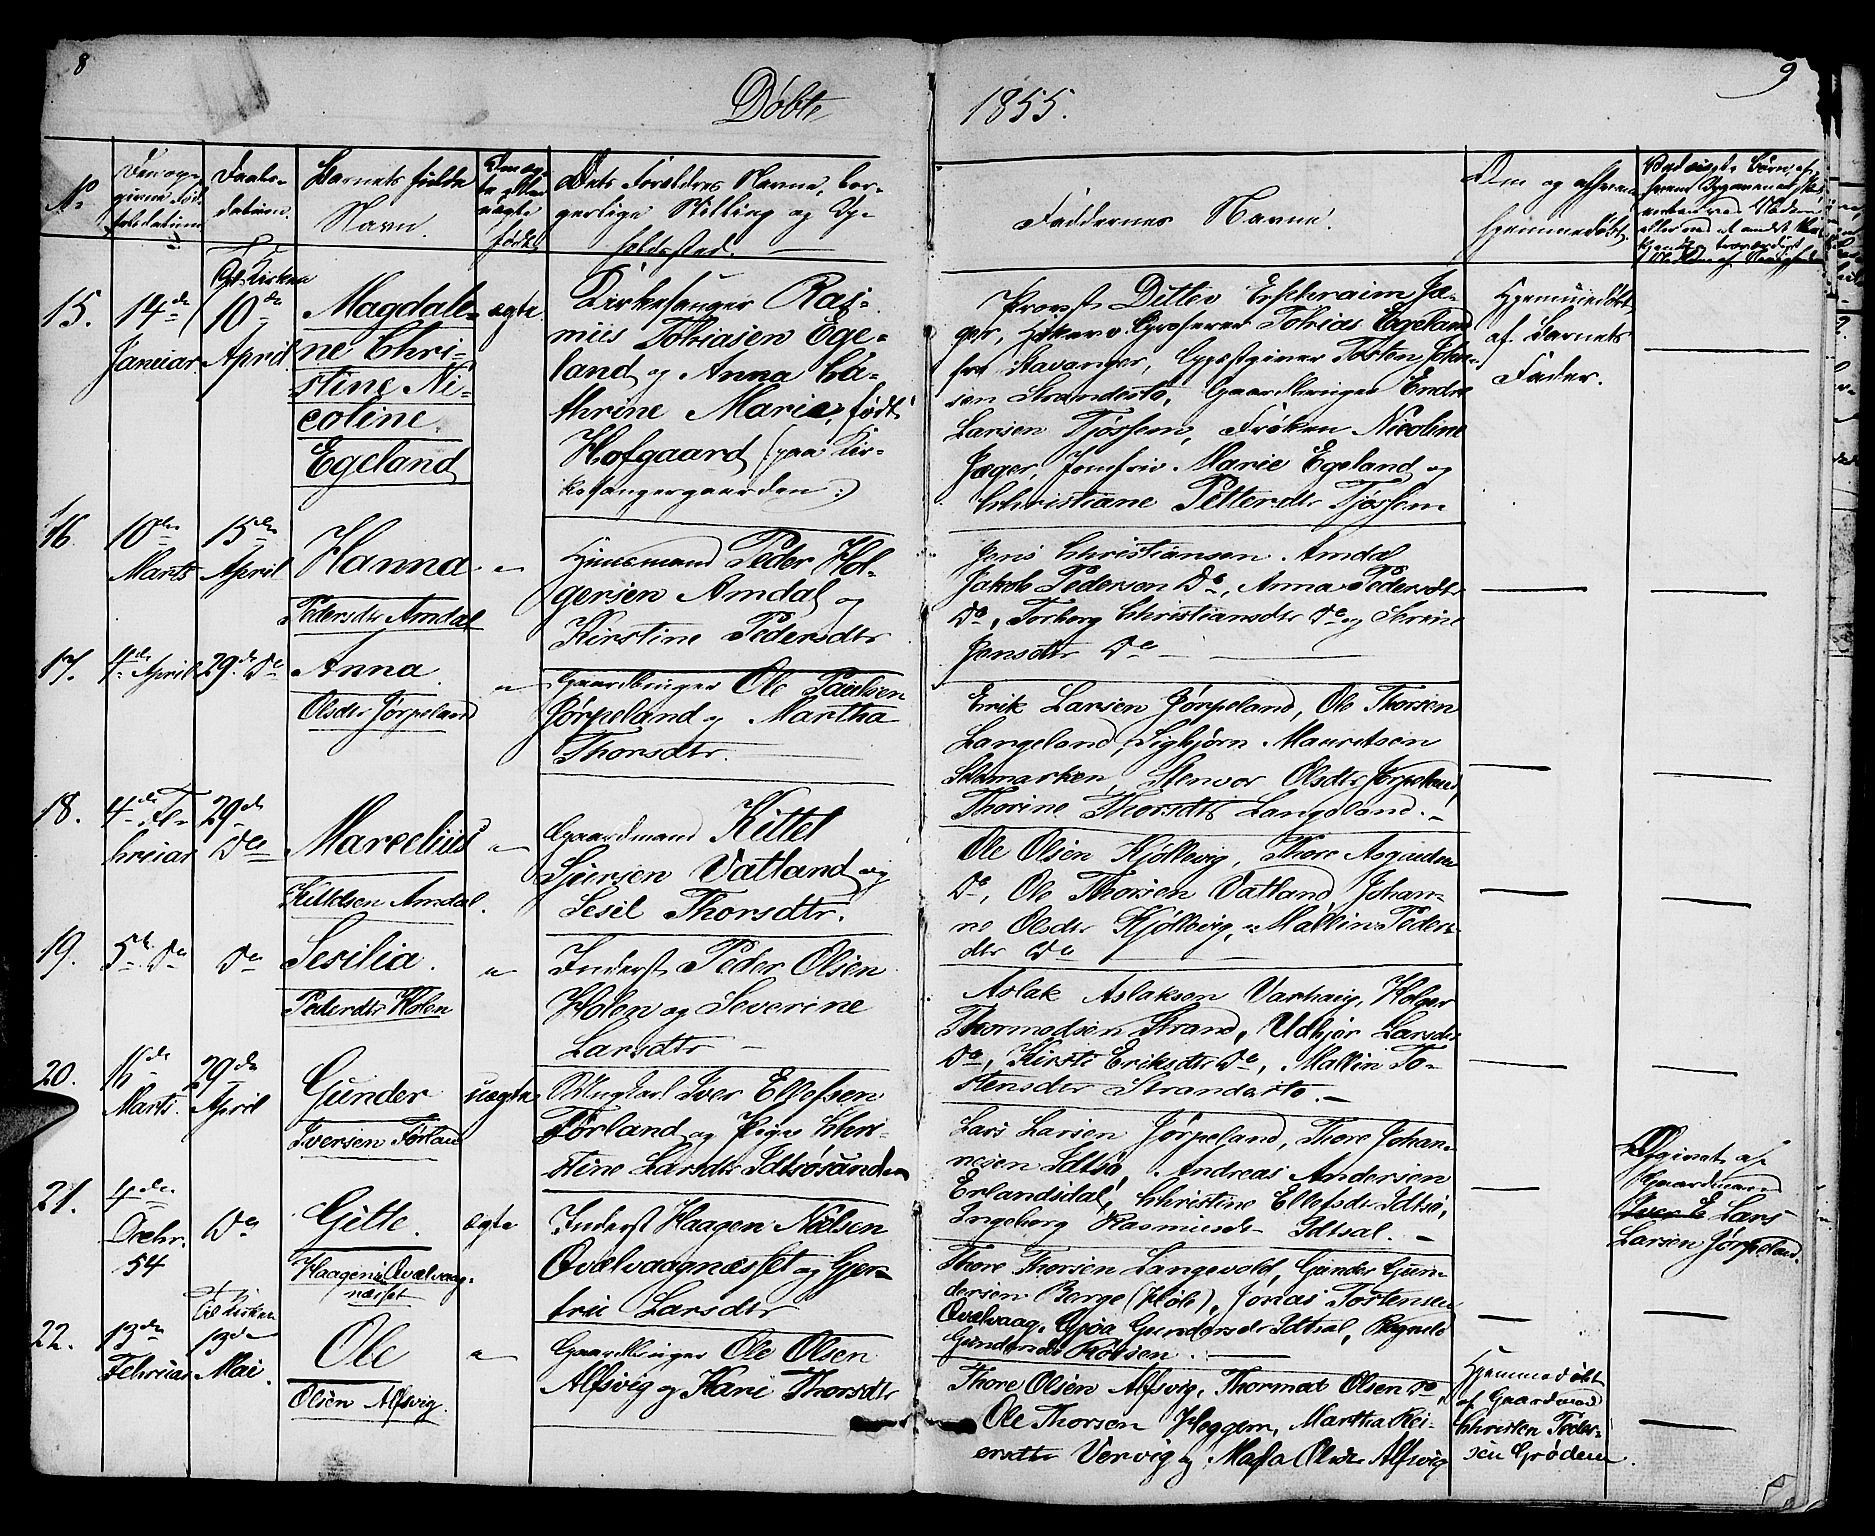 8
Döbte
1855.
9
No
Den opgivne Fødselsdatum
Daabsdatum.
Barnets fulde
Navn.
ægte eller
uægte
født
Dets Forældres Navne, borgerlige Stilling og Opholdssted.
Faddernes Navne.
Om og af hvem
hjemmedöbt.
15.
14de
Januar
Til Kirken
10de
April
Magdale-
ne Chri-
stine Ni-
coline
Egeland
ægte
Kirkesanger Ras-
mus Tobiasen Ege-
land og Anna Ca-
thrine Marie, født
Hofgaard (paa Kir-
kesangergaarden:)
Provst Ditlev Ephraim Jæ-
ger, Grosserer Tobias Egeland
fra Stavanger, Gjæstgiver Tosten John-
sen Strandestø, Gaardbruger Endre
Larsen Tjössem, Fröken Nicoline
Jæger, Jomfru Marie Egeland og
Christiane Petterdtr Tjössem
Hjemmedöbt
af Barnets
Fader.
16
10de
Marts
15de
April
Hanna
Pedersdtr Amdal
"
Huusmand Peder Hol-
gersen Amdal og
Kirstine Pedersdtr
Jens Christiansen Amdal
Jakob Pedersen Do, Anna Pedersdtr
Do, Torborg Christiansdtr Do og Thrine
Jensdtr Do
17.
4de April
29de Do
Anna
Olsdtr Jörpeland
"
Gaardbruger Ole Paulsen
Jörpeland og Martha
Thorsdtr
Erik Larsen Jörpeland, Ole Thorsen
Langeland, Sigbjörn Mauritsen
Selemarken, Stenvor Olsdtr Jörpeland,
Thorine Thorsdtr Langeland.
18.
4de Fe-
bruar
29de
Do
Marcelius
Kittelsen Amdal.
"
Gaardmand Kittel
Sjursen Vatland og
Sesil Thorsdtr.
Ole Olsen Kjöllevig, Thore Asgautsen
Do, Ole Thorsen Vatland, Johan-
ne Olsdtr Kjölevig, Mallin Peders-
dtr Do
19.
5te Do
Do
Sesilia.
Pedersdtr Holen
"
Inderst Peder Olsen
Holen og Severine
Larsdtr
Aslak Aslaksen Varhaug, Holger
Thormodsen Strand, Udbjör Larsdtr
Do, Kirsti Eriksdtr Do, Mallin To-
stensdtr Strandestø.
20.
16de
Marts.
29de
April
Gunder
Iversen Förland
uægte
Ungkarl Iver Ellefsen
Förland og Pige Chri-
stine Larsdtr Idtsösunden
Lars Larsen Jörpeland, Thore Johan-
nesen Idtsö, Andreas Andersen
Erlandsdal, Christine Ellefsdtr Idtsö,
Ingeborg Rasmusdr Idtsal.
Opgivet af
Gaardmand
Iver E Lars
Larsen Jörpeland.
21.
4de
Decbr.
54
Do
Gitte.
Haagensd Qvalvaag-
næsset
ægte
Inderst Haagen Nielsen
Qvalvaagnæsset og Gjer-
true Larsdtr
Thore Thorsen Langevold, Gunder Gun-
dersen Berge (Höle), Jonas Tostensen
Qvalvaag, Gjöa Gundersdr Idtsal, Ragnele
Gundersdtr Kölsen.
22.
13de
Februar
Til Kirken
13de
Mai.
Ole
Olsen Alfsvig.
"
Gaardbruger Ole Olsen
Alfsvig og Kari Thorsdtr
Thore Olsen Alfsvig, Thormod Olsen Do,
Ole Thorsen Heggem, Martha Rei-
ersdtr Vervig og Marta Olsdtr Alfsvig
Hjemmedöbt
af Gaardmand
Christen Peder-
sen Grödem.